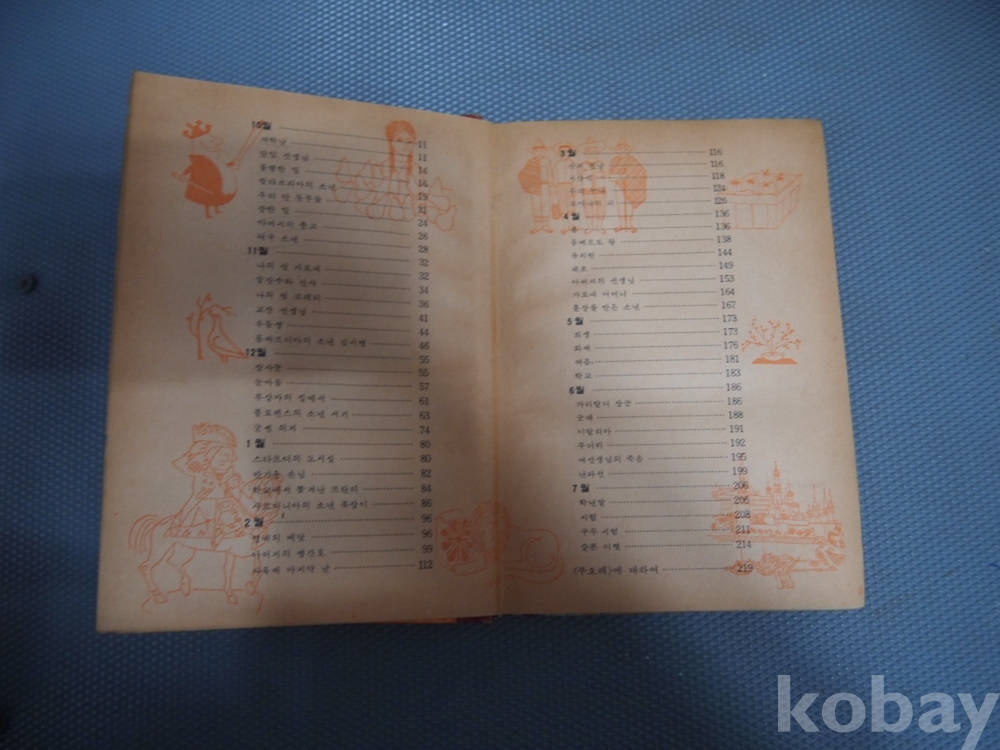 10월 11
개학날 11
담임 선생님 14
불행한 일 16
칼라브리아의 소년 19
우리 반 동무들 21
장한 일 24
아버지의 충고 26
애국 소년 28
11월 32
나의 벗 가로네 32
숯장수와 신사 34
나의 벗 코레티 36
교장 선생님 41
우등생 44
롬바르디아의 소년 감시병 46
12월 55
장사꾼 55
눈싸움 57
부상자의 집에서 61
플로렌스의 소년 서기 63
굳센 의지 74
1월 80
스타르디의 도서실 80
반가운 손님 82
학교에서 쫓겨난 프란티 84
사르디니아의 소년 북잡이 86
2월 96
명예의 메달 96
아버지의 병간호 99
사육제 마지막 날 112
3월 116
116
118
124
로마냐의 피 126
4월 136
봄 136
움베르토 왕 138
유치원 144
체조 149
아버지의 선생님 153
가로네 어머니 164
훈장을 받은 소년 167
5월 173
희생 173
화재 176
여름 181
학교 183
6월 186
가리발디 장군 186
군대 188
이탈리아 191
무더위 192
여선생님의 죽음 195
난파선 199
7월 206
학년말 206
시험 208
구두 시험 211
슬픈 이별 214
에 대하여 219
kobay